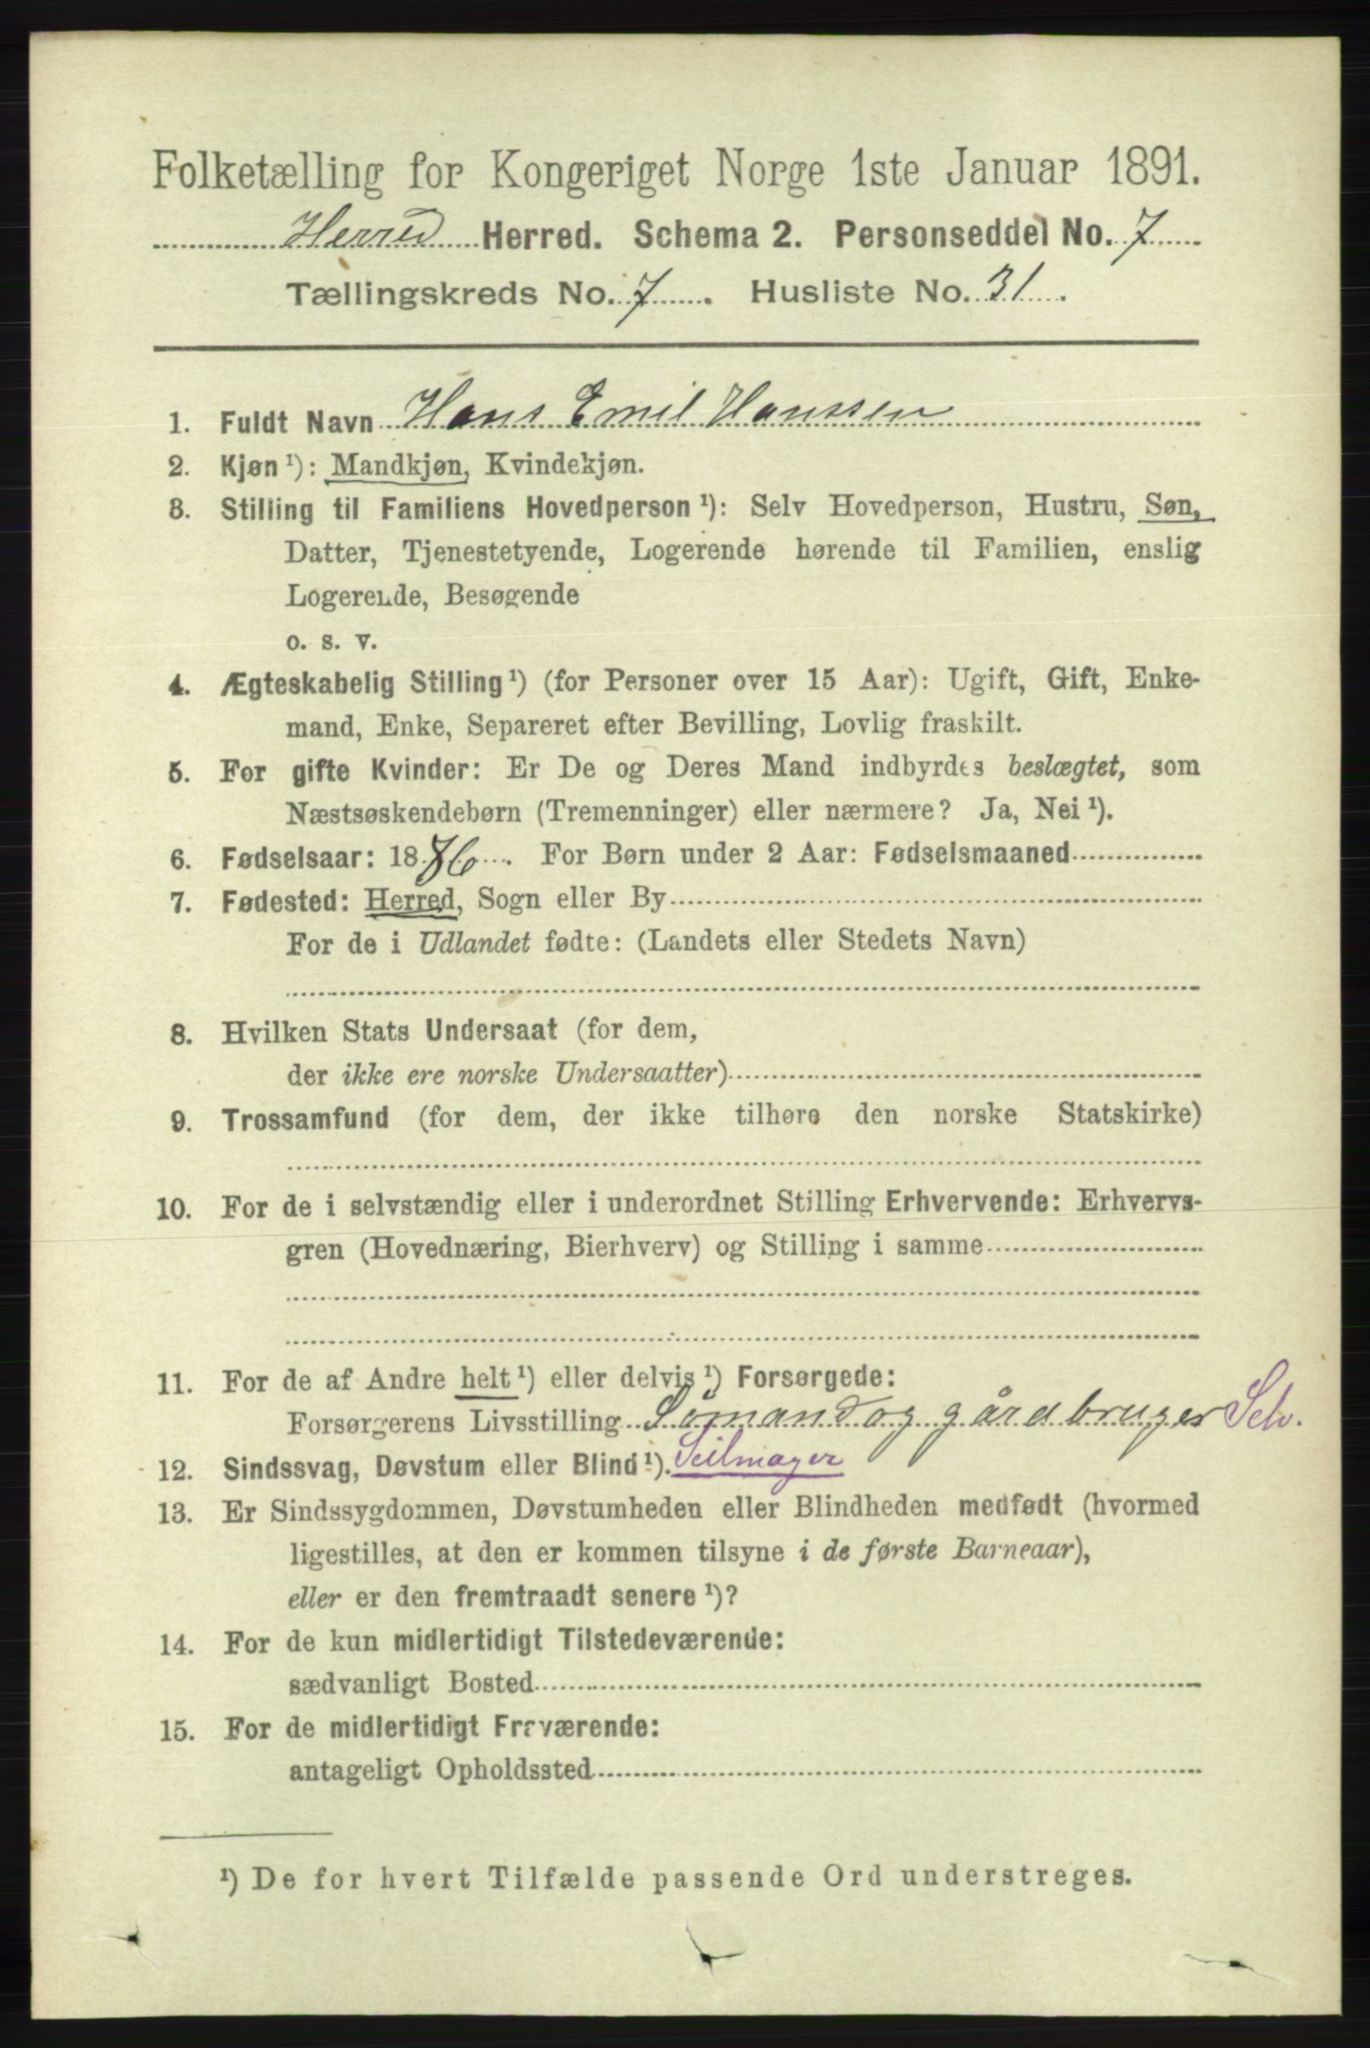 Folketælling for Kongeriget Norge 1ste Januar 1891.
Herred Herred. Schema 2. Personseddel No. 7
Tællingskreds No. 7. Husliste No. 31.
1. Fuldt Navn Hans Emil Hanssen
2. Kjøn ¹): Mandkjøn, Kvindekjøn.
3. Stilling til Familiens Hovedperson ¹): Selv Hovedperson, Hustru, Søn,
Datter, Tjenestetyende, Logerende hørende til Familien, enslig
Logerende, Besøgende
o. s. v.
4. Ægteskabelig Stilling ¹) (for Personer over 15 Aar): Ugift, Gift, Enke-
mand, Enke, Separeret efter Bevilling, Lovlig fraskilt.
5. For gifte Kvinder: Er De og Deres Mand indbyrdes beslægtet, som
Næstsøskendebørn (Tremenninger) eller nærmere? Ja, Nei ¹).
6. Fødselsaar: 1886. For Børn under 2 Aar: Fødselsmaaned
7. Fødested: Herred, Sogn eller By
For de i Udlandet fødte: (Landets eller Stedets Navn)
8. Hvilken Stats Undersaat (for dem,
der ikke ere norske Undersaatter)
9. Trossamfund (for dem, der ikke tilhøre den norske Statskirke)
10. For de i selvstændig eller i underordnet Stilling Erhvervende: Erhvervs-
gren (Hovednæring, Bierhverv) og Stilling i samme
11. For de af Andre helt ¹) eller delvis ¹) Forsørgede:
Forsørgerens Livsstilling Sömand og gårdbruger Selv.
12. Sindssvag, Døvstum eller Blind ¹). Seilmager
13. Er Sindssygdommen, Døvstumheden eller Blindheden medfødt (hvormed
ligestilles, at den er kommen tilsyne i de første Barneaar),
eller er den fremtraadt senere ¹)?
14. For de kun midlertidigt Tilstedeværende:
sædvanligt Bosted
15. For de midlertidigt Fraværende:
antageligt Opholdssted
¹) De for hvert Tilfælde passende Ord understreges.